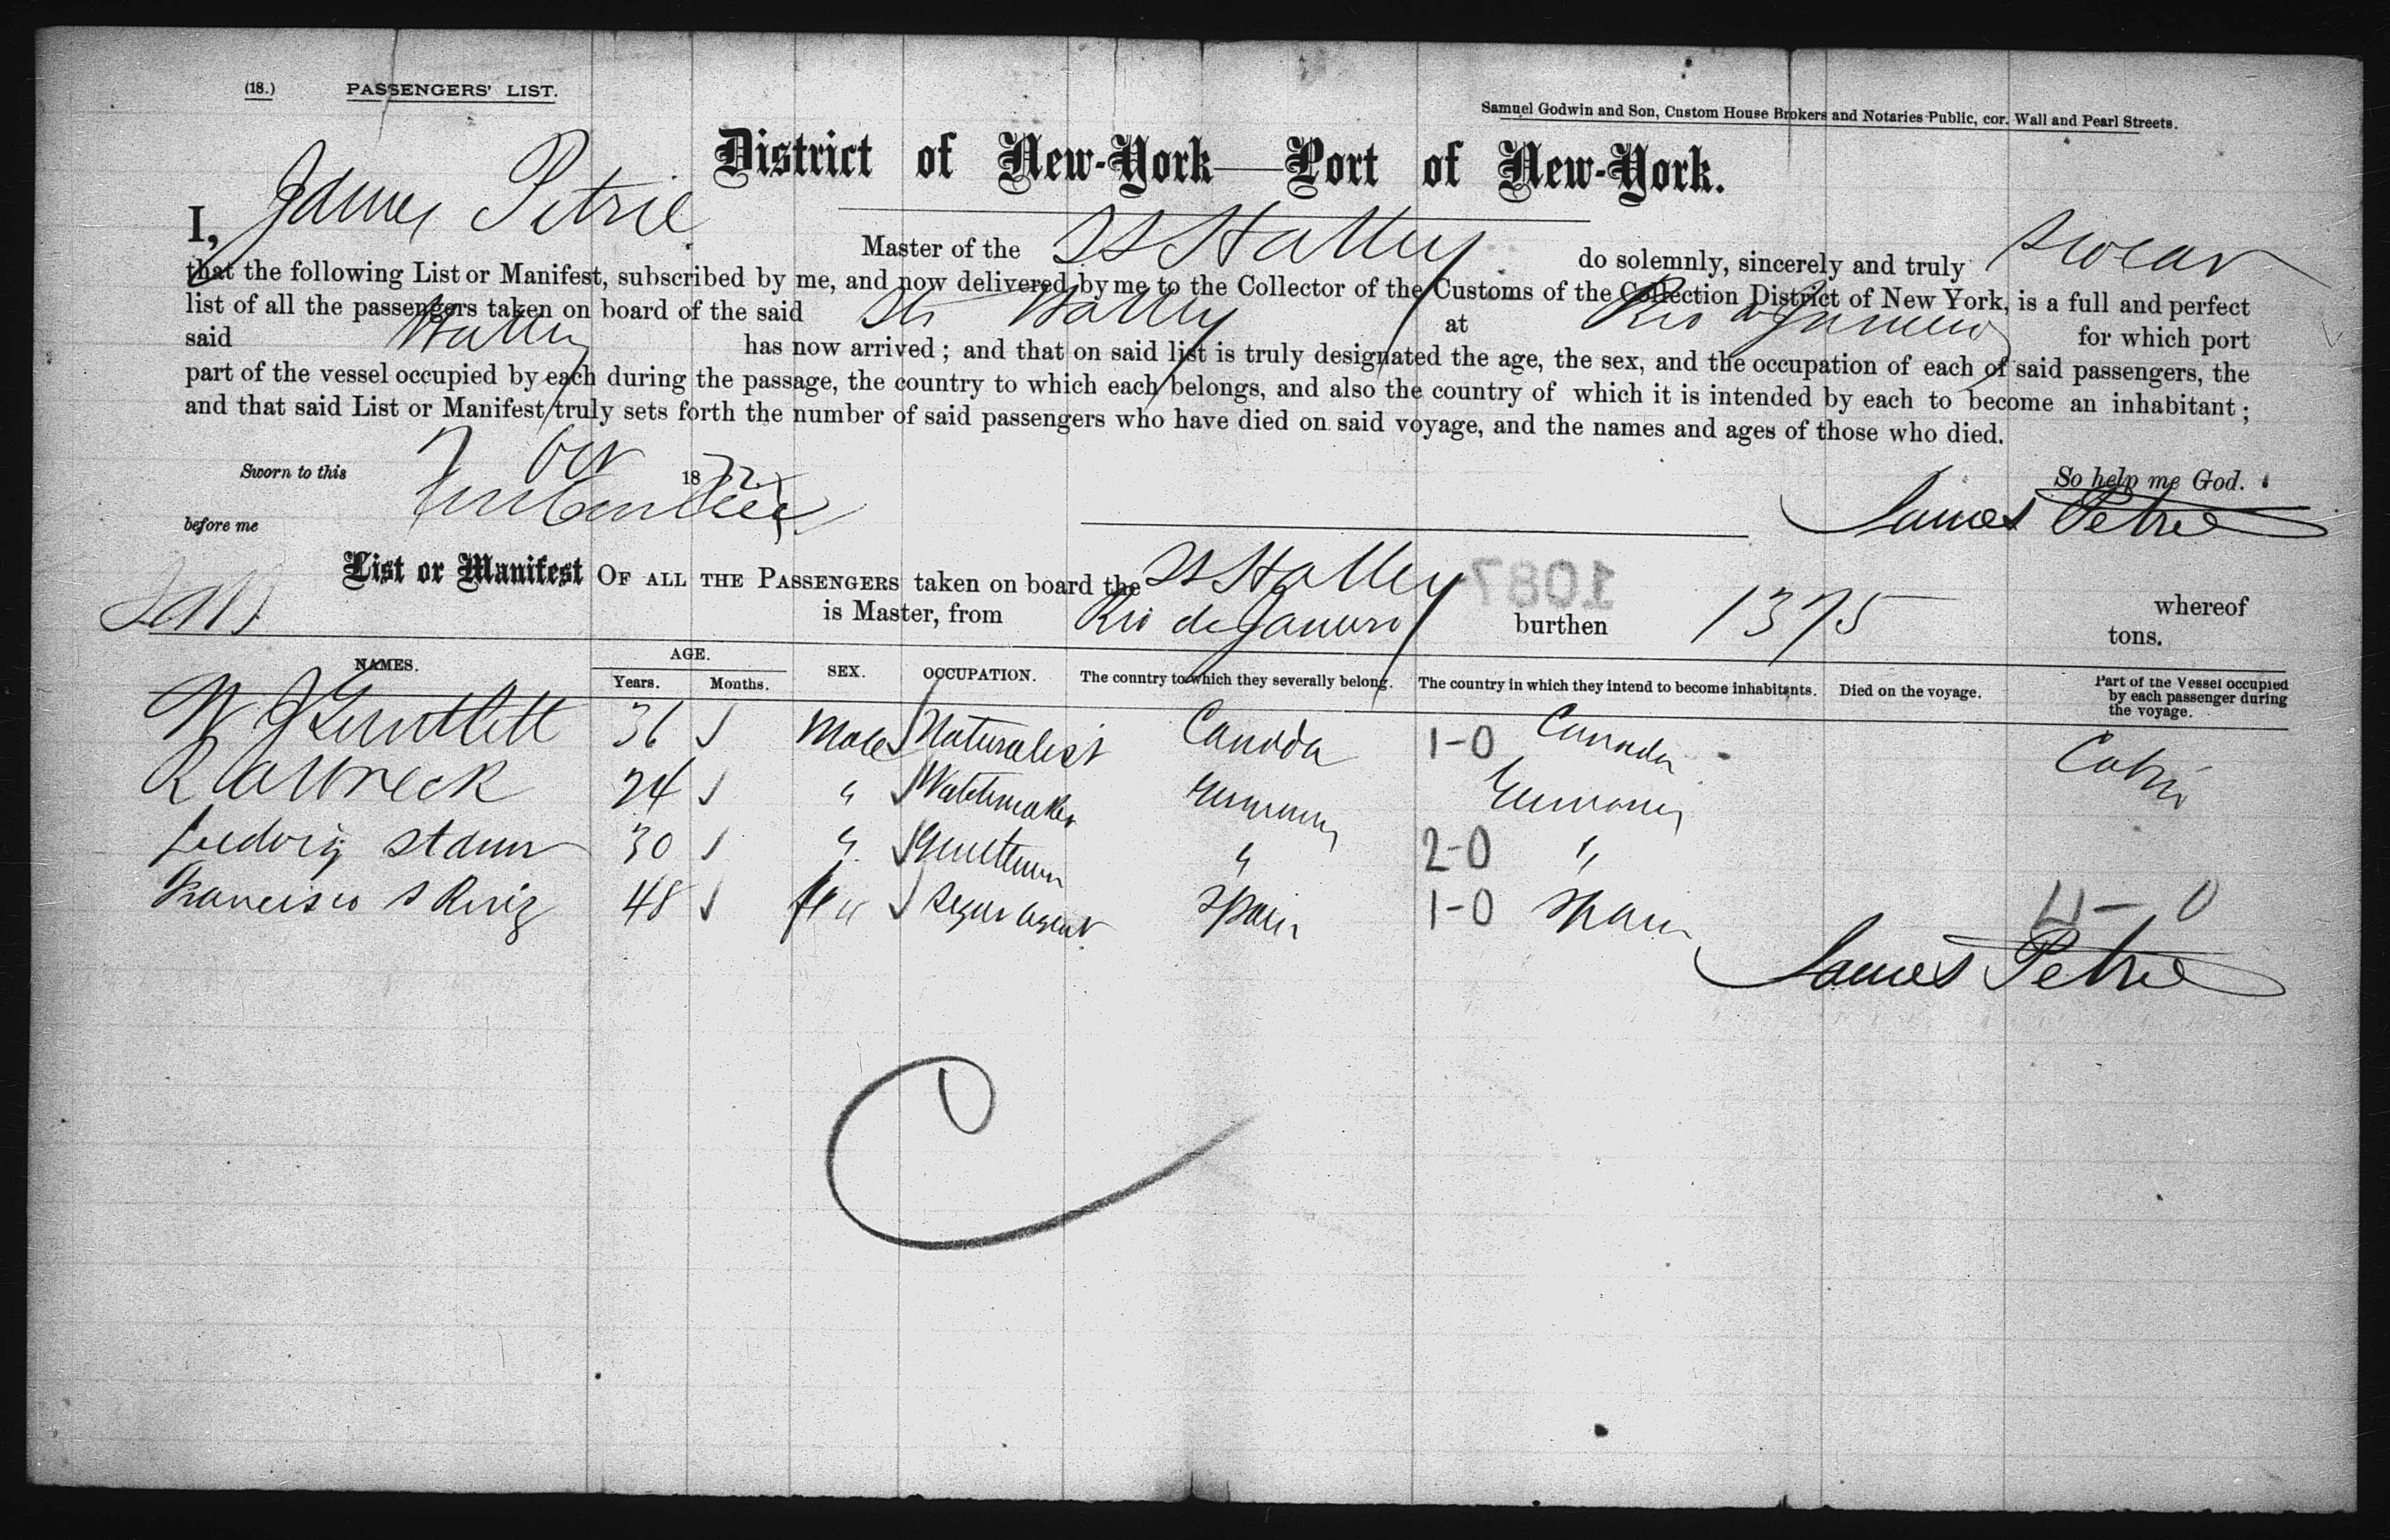 (18.) PASSENGERS' LIST.
Samuel Godwin and Son, Custom House Brokers and Notaries Public, cor. Wall and Pearl Streets.
District of New-York—Port of New-York.
I, James Petrie Master of the SS Halley do solemnly, sincerely and truly swear
that the following List or Manifest, subscribed by me, and now delivered by me to the Collector of the Customs of the Collection District of New York, is a full and perfect
list of all the passengers taken on board of the said Str Halley at Rio de Janeiro for which port
said Halley has now arrived; and that on said list is truly designated the age, the sex, and the occupation of each of said passengers, the
part of the vessel occupied by each during the passage, the country to which each belongs, and also the country of which it is intended by each to become an inhabitant;
and that said List or Manifest truly sets forth the number of said passengers who have died on said voyage, and the names and ages of those who died.
Sworn to this 7 Oct 1872 So help me God.
before me James Petrie
List or Manifest OF ALL THE PASSENGERS taken on board the SS Halley 1087 whereof
is Master, from Rio de Janeiro burthen 1375 tons.
NAMES. AGE. Years. Months. SEX. OCCUPATION. The country to which they severally belong. The country in which they intend to become inhabitants. Died on the voyage. Part of the Vessel occupied by each passenger during the voyage.
W J Gauntlett 36 Male Naturalist Canada 1-0 Canada Cabin
24 " Watchmaker Germany Germany
Ludwig Stamm 30 " Gentleman " 2-0 "
Francisco S Ruiz 48 Segar agent Spain 1-0 Spain 4-0
James Petrie